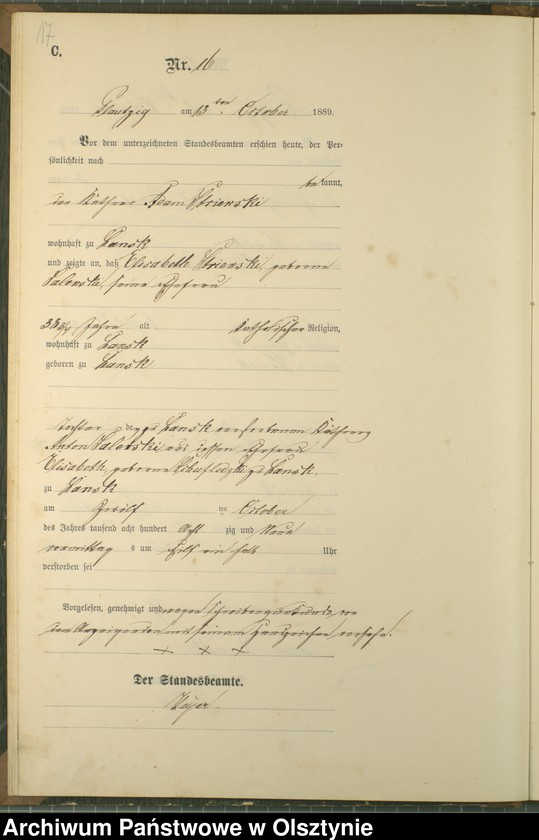 17
C.
Nr. 16
Plautzig am 13ten October 1889.
Vor dem unterzeichneten Standesbeamten erschien heute, der Per-
sönlichkeit nach
bekannt,
der Käthner Adam
wohnhaft zu Lansk
und zeigte an, daß Elisabeth geborene
seine Ehefrau
Jahre alt katholischer Religion,
wohnhaft zu Lansk
geboren zu Lansk
Tochter des zu Lansk verstorbenen Käthners
Anton und dessen Ehefrau
Elisabeth geborene zu Lansk
zu Lansk
am Zwölf ten October
des Jahres tausend acht hundert Acht zig und Neun
vormittag s um Uhr
verstorben sei
Vorgelesen, genehmigt und wegen
dem Anzeigenden mit seinem Handzeichen versehn.
x x x
Der Standesbeamte.
Archiwum Państwowe w Olsztynie